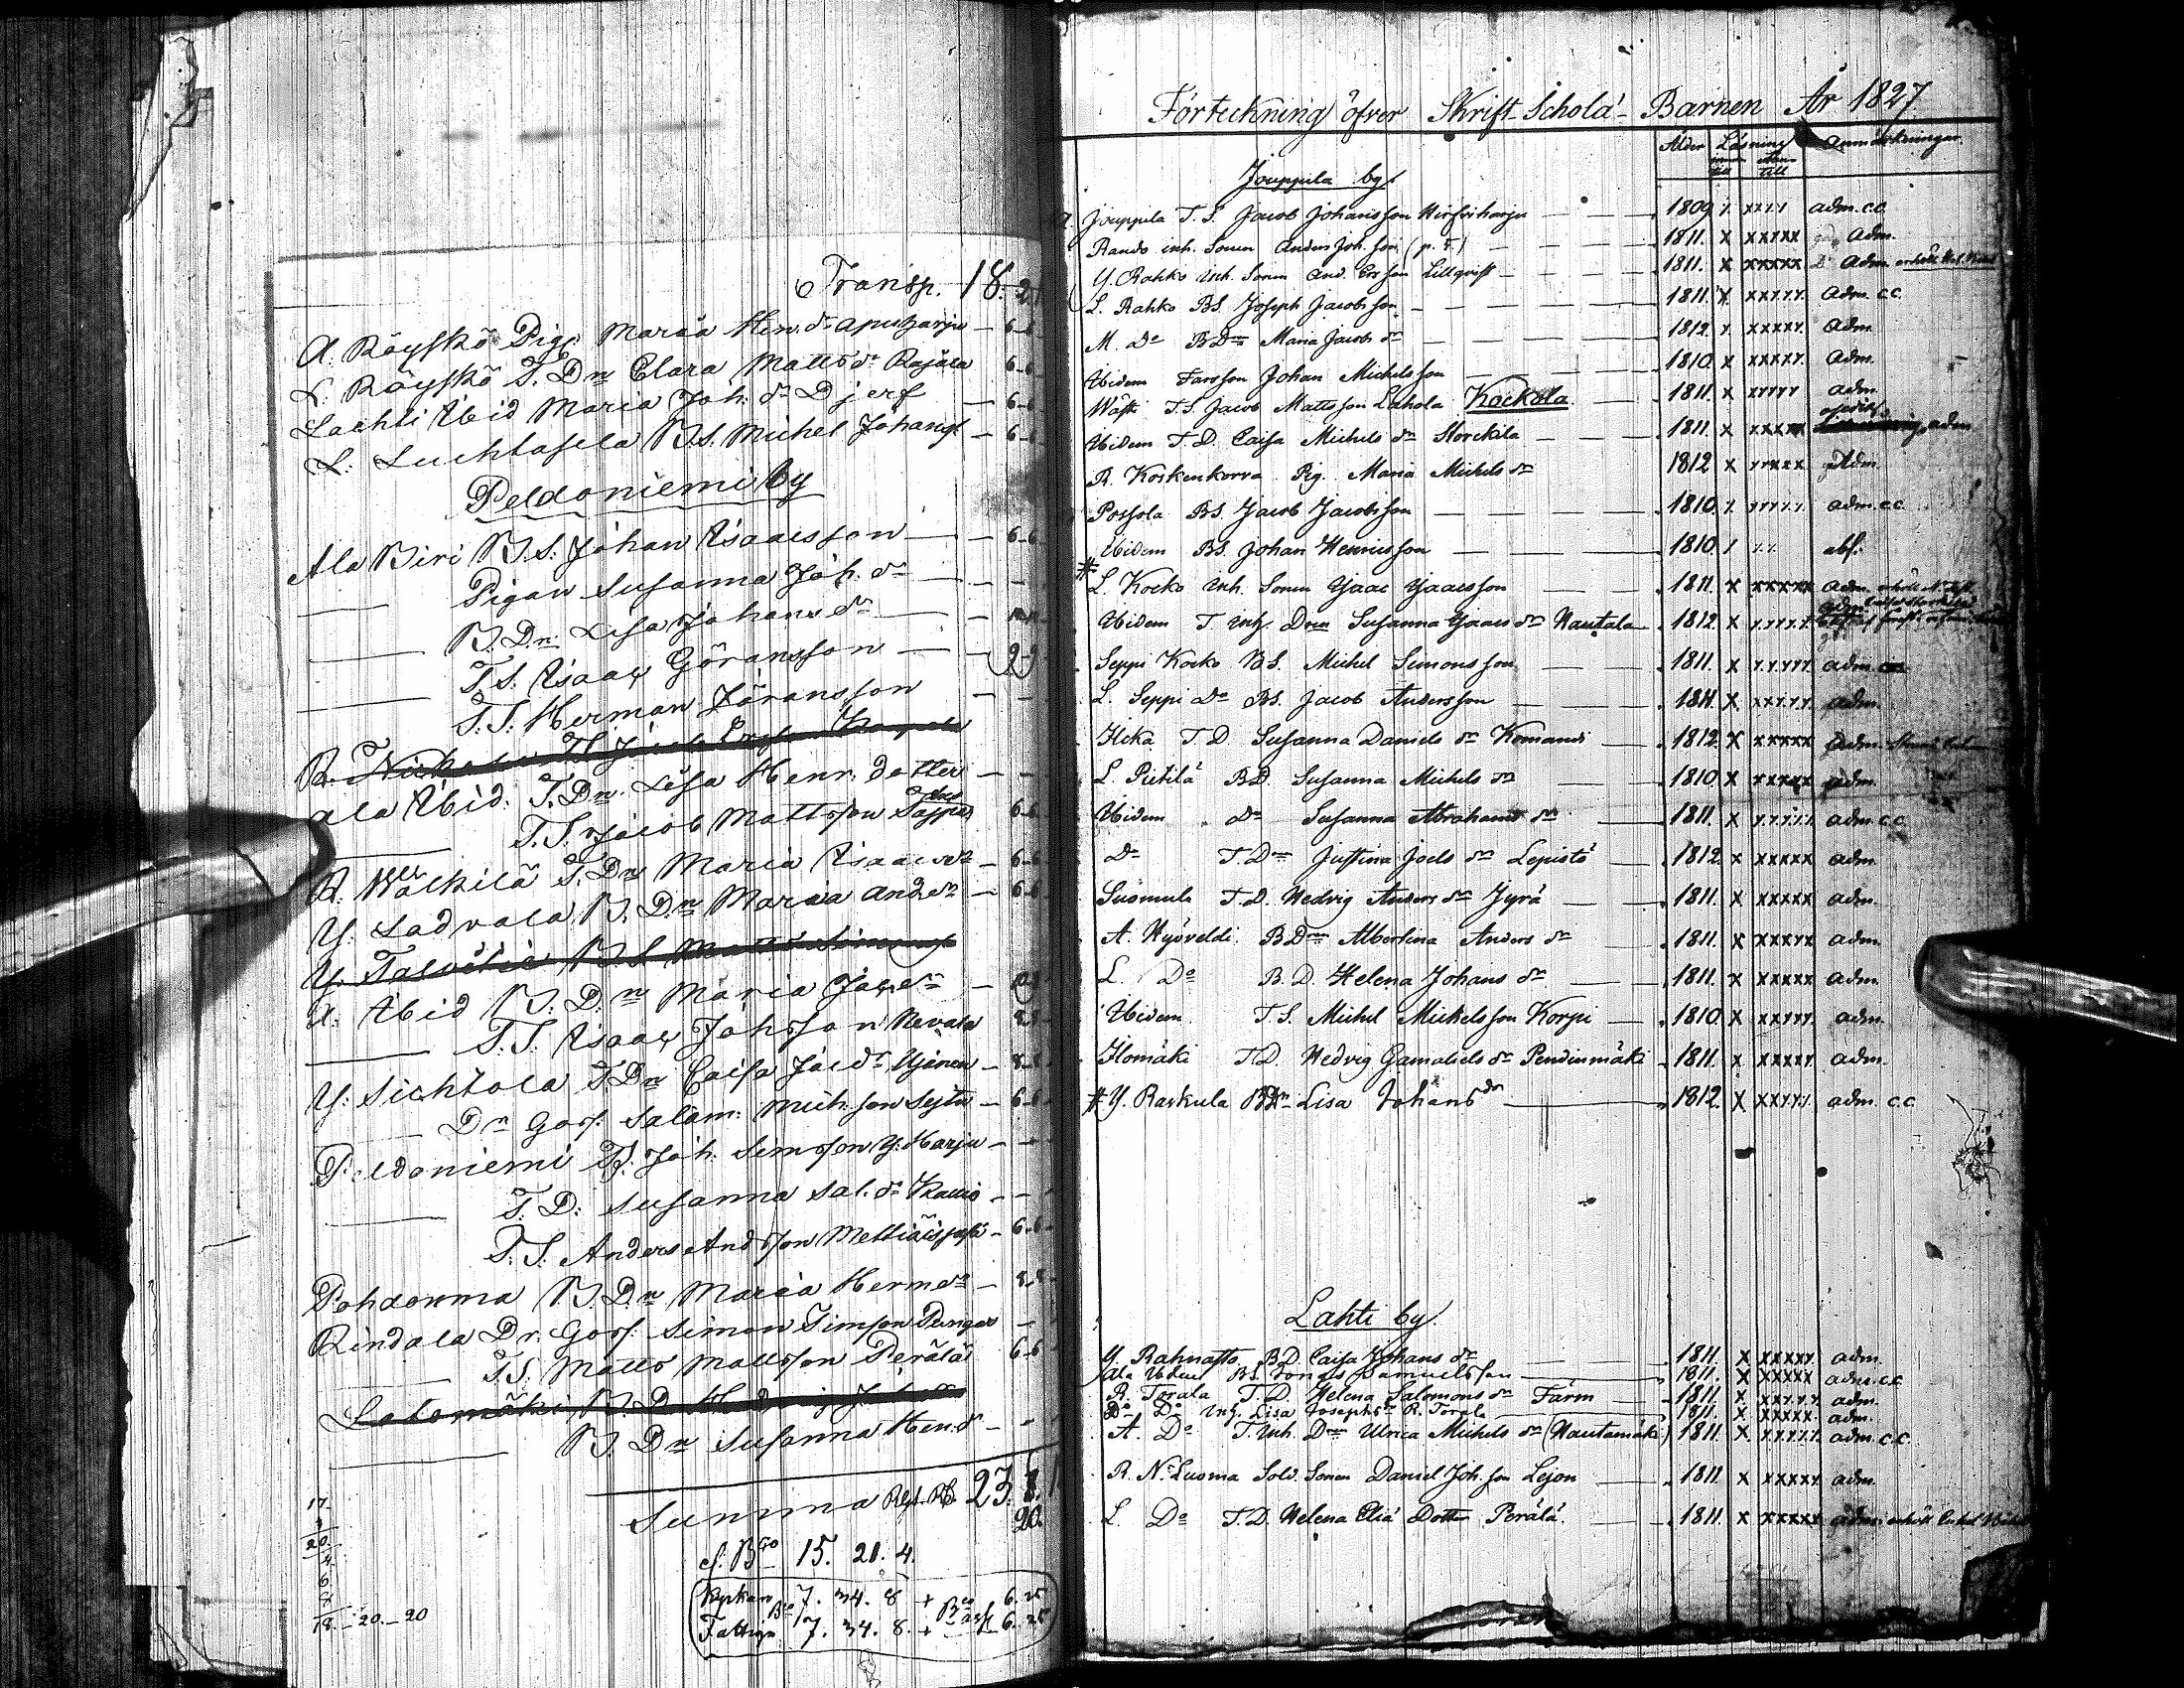 Transp. 18. 2
A. Röyskö Pig. Maria Hen. dr Apusharju — 6-6
L. Röyskö T. Dn Clara Matts dr Rajala 6-6
Lachti Ibid Maria Joh. dr Djerf — 6-6
L. Luchtasela B.S. Michel Johanss — 6-6
Peldoniemi by
Ala Biri B.S. Johan Isaacsson — 6-6
Pigan Susanna Joh. dr — —
B. Dn. Lisa Johans dr —
T.S. Isaac Göransson — 9-9
T.S. Herman Göransson — —
R.
ala Ibid. T. Dn. Lisa Henr. dotter — —
T.S. Jacob Mattsson 6-6
R. Wälkilä T. Dn Maria Isaacs dr — 6-6
Y. Ladvala B. Dn Maria And. dr — 6-6
Y. Talvitie B.S. Matts
A. Ibid B. Dn Maria Jac. dr —
T.S. Isaac Johsson Nevala 8-8
Y. Sichtola T. Dn Caisa Jac dr Ujänen — 8-8
Dr. Goss. Salom. Mich. son Sejta — 6-6
Peldoniemi T.S. Joh. Simsson Y. Harju — —
T. D. Susanna Sal. dr Kallio — —
T. S. Anders Andsson Mettiäis — 6-6
Pohdonma B. Dn Maria Herm dr — 8-8
Rindala Dr. Goss. Simon Simsson Pungar —
T.S. Matts Mattsson Perälä 6-6
Lotomäki B. D. Hedvig
B. Dn Susanna Hen. dr —
Summa 23. 8.
20.
17.
20
4
6
8
18. — 20. — 20
Bco 15. 21. 4.
Kyrkan 7. 34. 8 + Bco 6.25
Fattiga 7. 34. 8. + 6.25
Förteckning öfver Skrift-Schola-Barnen År 1827
Ålder Läsning Anmärkningar.
innan till utan till
Jouppila by
A. Jouppila T. S. Jacob Johansson Hirsiharju — 1809 x xxxx adm. c.c.
Rando inh. Sonen Anders Joh. son (p. 5.) — 1811. x xxxxx Adm.
Y. Rahko Inh. Sonen And. Ersson Lillqvist — 1811. x xxxxx Adm. erhöll
L. Rahko BS. Joseph Jacobsson — 1811. x xxxxx. adm. c.c.
M. Do B Drn Maria Jacobs dr — 1812. x xxxxx. adm
Ibidem Farsson Johan Michelsson — 1810 x xxxxx. adm.
Wästi T.S. Jacob Mattsson Lahola Kockola — 1811. x xxxxx adm
Ibidem T. D. Caisa Michels dr Storckila — 1811. x xxxxx adm
R. Koskenkorva Pig. Maria Michels dr 1812 x xxxxx Adm.
Possola BS. Jacob Jacobsson — 1810. x xxxxx. adm. c.c.
Ibidem BS. Johan Henricsson — 1810. / xx abs:
# L. Kocko Inh. Sonen Isaac Isaacsson — 1811. x xxxxx adm. erhöll
Ibidem T. Inh. Drn Susanna Isaacs dr Nautala — 1812. x xxxxx. adm.
Seppi Kocko BS. Michel Simonsson — 1811. x xxxxx. adm.
L. Seppi Do BS. Jacob Andersson — 1811. x xxxxx. adm.
Ilka T. D. Susanna Daniels dr Komandi — 1812. x xxxxx adm.
L. Pietilä B.D. Susanna Michels dr — 1810. x xxxxx adm.
Ibidem do Susanna Abrahams dr — 1811. x xxxxx. adm. c.c.
Do T. Drn Justina Joels dr Lepistö — 1812. x xxxxx adm.
Susmula T. D. Hedvig Anders dr Jyrä — 1811. x xxxxx. adm.
A. Hyöveldi. B Drn Albertina Anders dr — 1811. x xxxxx adm.
L. Do B. D. Helena Johans dr — 1811. x xxxxx adm.
Ibidem T. S. Michel Michelsson Korpi — 1810. x xxxxx. adm.
Ilomäki T. D. Hedvig Gamaliels dr Pendinmäki — 1811. x xxxxx adm.
# Y. Raskula B Drn Lisa Johans dr — 1812. x xxxxx adm. c.c.
Lahti by.
Y. Rahnasto B.D. Caisa Johans dr — 1811. x xxxxx. adm.
Ala Ibidem BS. Tomas Samuelsson — 1811. x xxxxx adm. c.c.
R. Torala T. D. Helena Salomons dr Färm — 1811. x xxxxx. adm.
Do Do Inh. Lisa Josephs dr R. Torala — 1811. x xxxxx. adm.
A. Do T. Inh. Drn Ulrica Michels dr (Nautamäki) 1811. x xxxxx. adm. c.c.
R. N. Luoma Sold. Sonen Daniel Joh. son Lejon — 1811 x xxxxx. adm.
L. Do T. D. Helena Eliä Dotter Perälä. — 1811. x xxxxx adm. erhöll